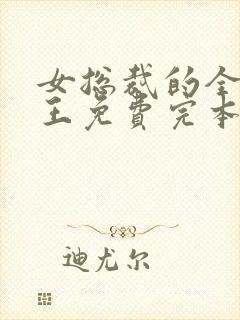 女总裁的全
王免费完本
迪尤尔